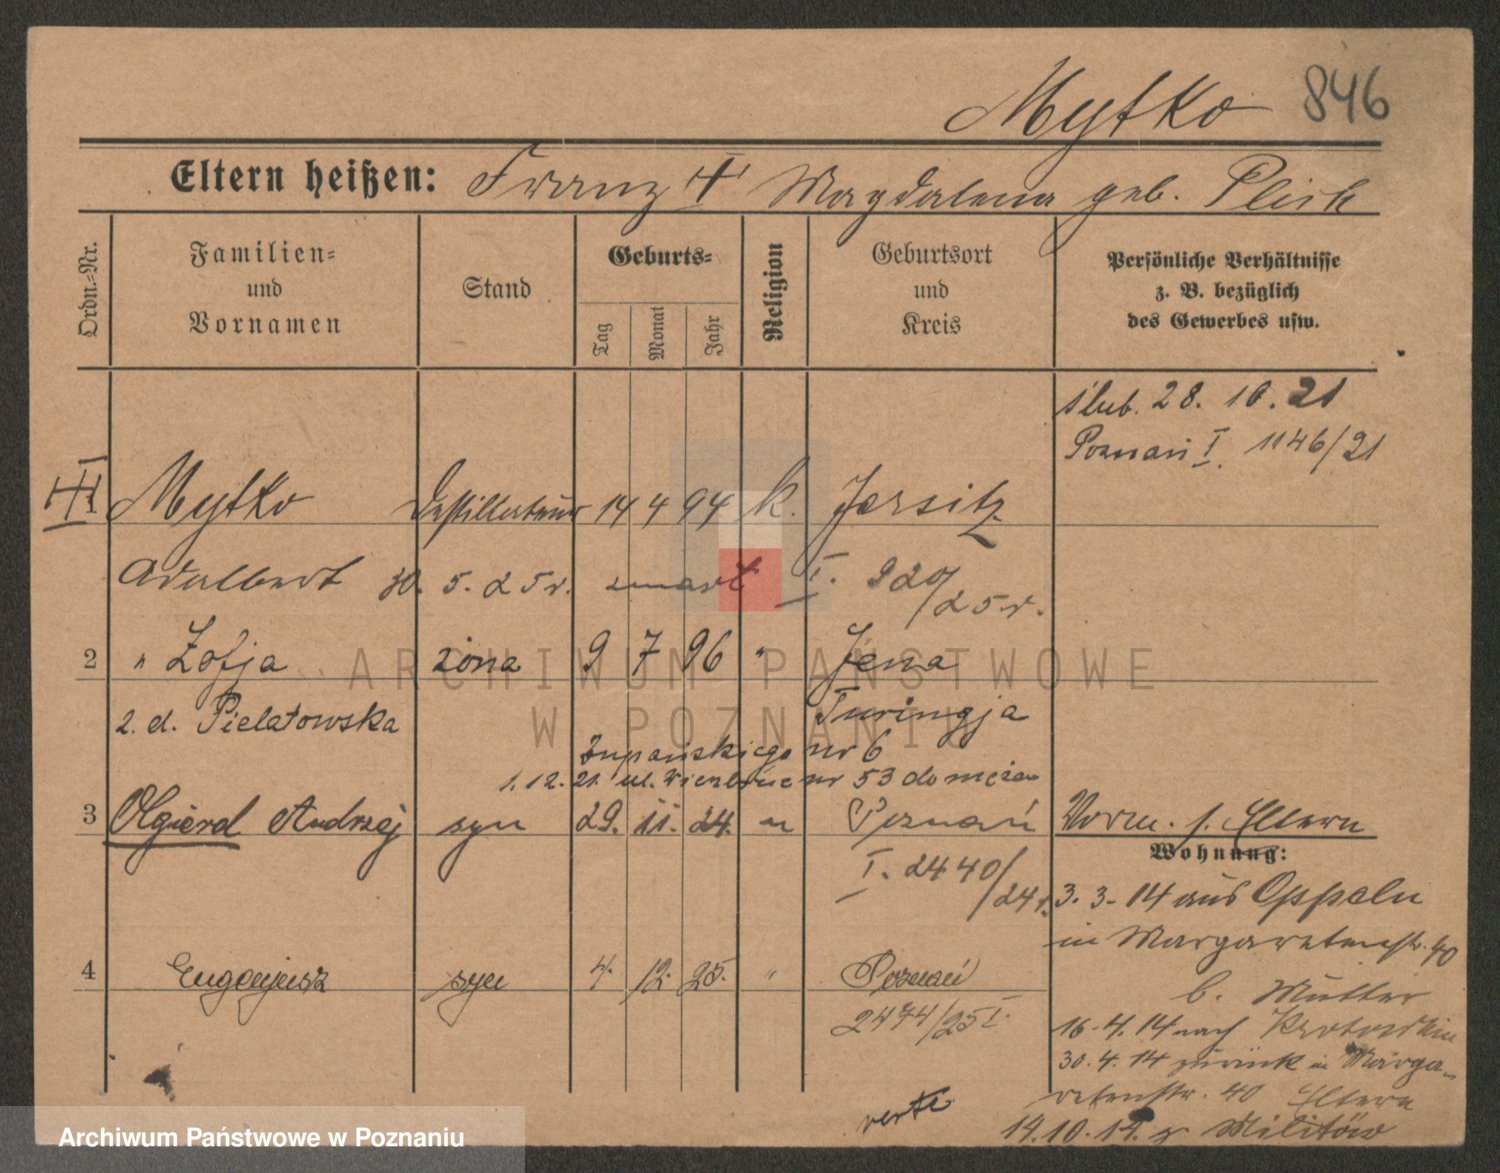 Mytko 846
Eltern heißen: Franz Magdalena geb. Plisk
Ordn.-Nr.
Familien- und Vornamen
Stand
Geburts-
Tag Monat Jahr
Religion
Geburtsort und Kreis
Persönliche Verhältnisse
z. B. bezüglich
des Gewerbes usw.
ślub. 28. 10. 21
Poznań I. 1146/21
1 Mytko Destillateur 14 4 94 k. Jersitz
Adalbert 30. 5. 25 r. zmarł I. 920/25 r.
2 " Zofja żona 9 7 96 " Jena
z. d. Pielatowska Turingja
Żupańskiego nr 6
1. 12. 21. ul. nr 53 do męża
3 Olgierd Andrzej syn 29. 11. 24. " Poznań
I. 2440/24 r.
4 Eugenjusz syn 4. 12. 25. " Poznań
2474/25 I.
Vorm. s. Eltern
Wohnung:
3. 3. 14 aus Oppeln
in Margaretenstr. 40
b. Mutter
16. 4. 14 nach Krotoschin
30. 4. 14 zurück in Marga-
retenstr. 40 Eltern
14. 10. 14. z Militär
verte
ARCHIWUM PAŃSTWOWE
W POZNANIU
Archiwum Państwowe w Poznaniu